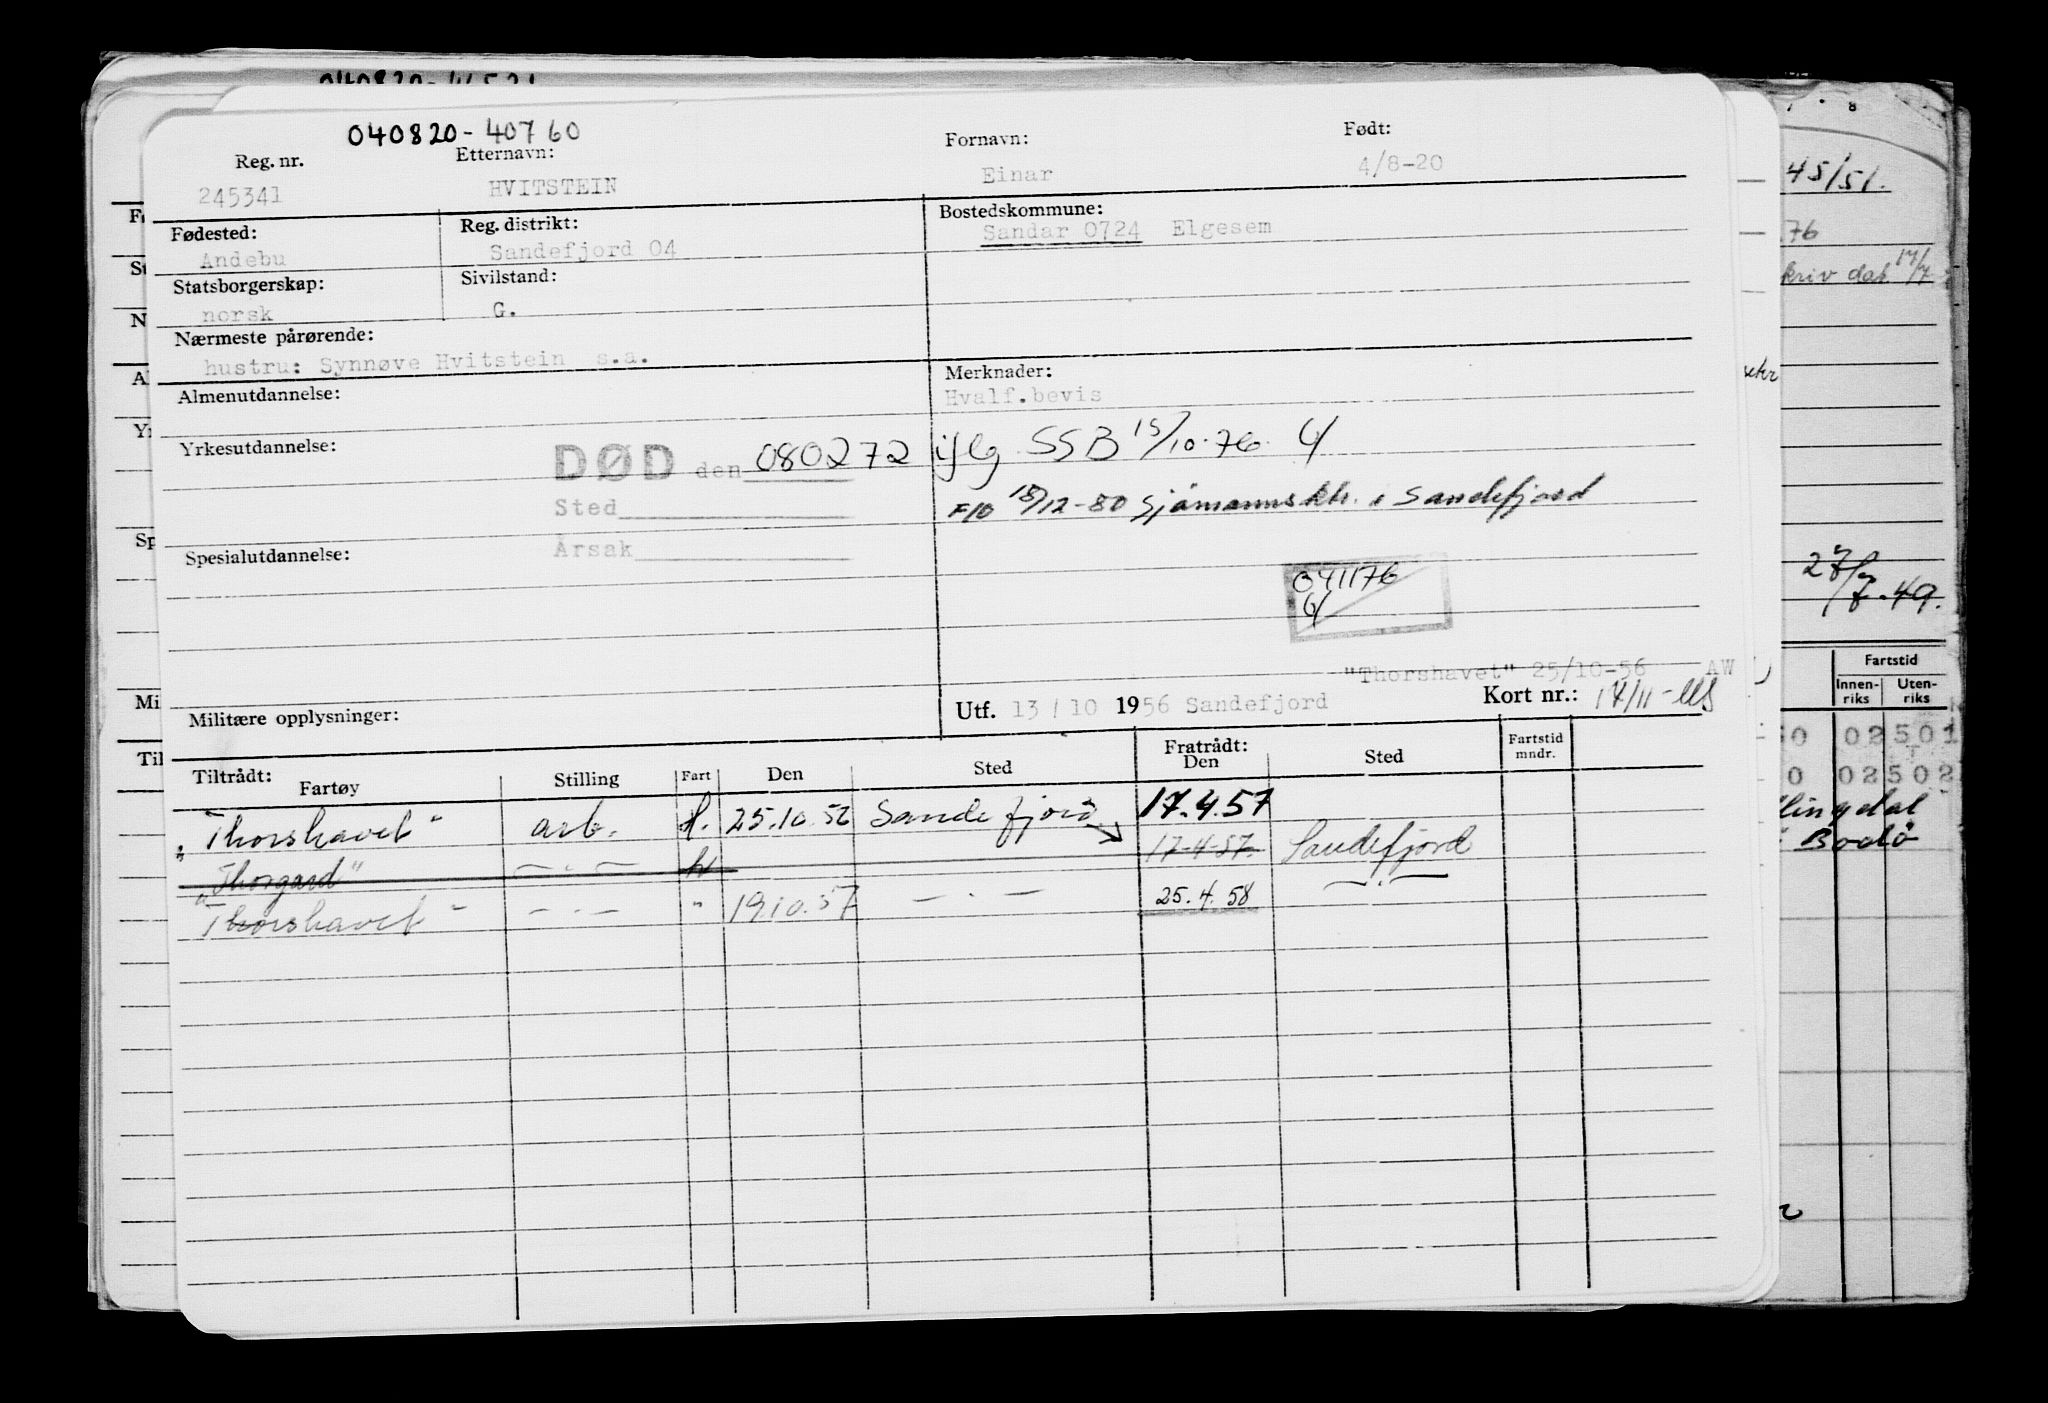 040820-40760
Reg. nr. Etternavn: Fornavn: Født:
245341 HVITSTEIN Einar 4/8-20
Fødested: Reg. distrikt: Bostedskommune:
Andebu Sandefjord 04 Sandar 0724 Elgesem
Statsborgerskap: Sivilstand:
norsk G.
Nærmeste pårørende:
hustru: Synnøve Hvitstein s.a.
Merknader:
Almenutdannelse: Hvalf.bevis
Yrkesutdannelse: DØD den 080272 iflg SSB 15/10-76
Sted
F10 18/12-80 Sjømannsktr. i Sandefjord
Spesialutdannelse: Årsak
041176
"Thorshavet" 25/10-56 AW
Militære opplysninger: Utf. 13/10 1956 Sandefjord Kort nr.: 17/11
Tiltrådt: Fratrådt: Fartstid mndr.
Fartøy Stilling Fart Den Sted Den Sted
"Thorshavet" arb. H. 25.10.56 Sandefjord 17.4.57
"Thorgard" — . — H 17-4-57. Sandefjord
"Thorshavet" — . — " 19.10.57 — . — 25.4.58 — . —
45/51.
76
kriv dat. 17/7
27/7-49.
Fartstid
Innenriks Utenriks
0 02501
0 02502
Bodø